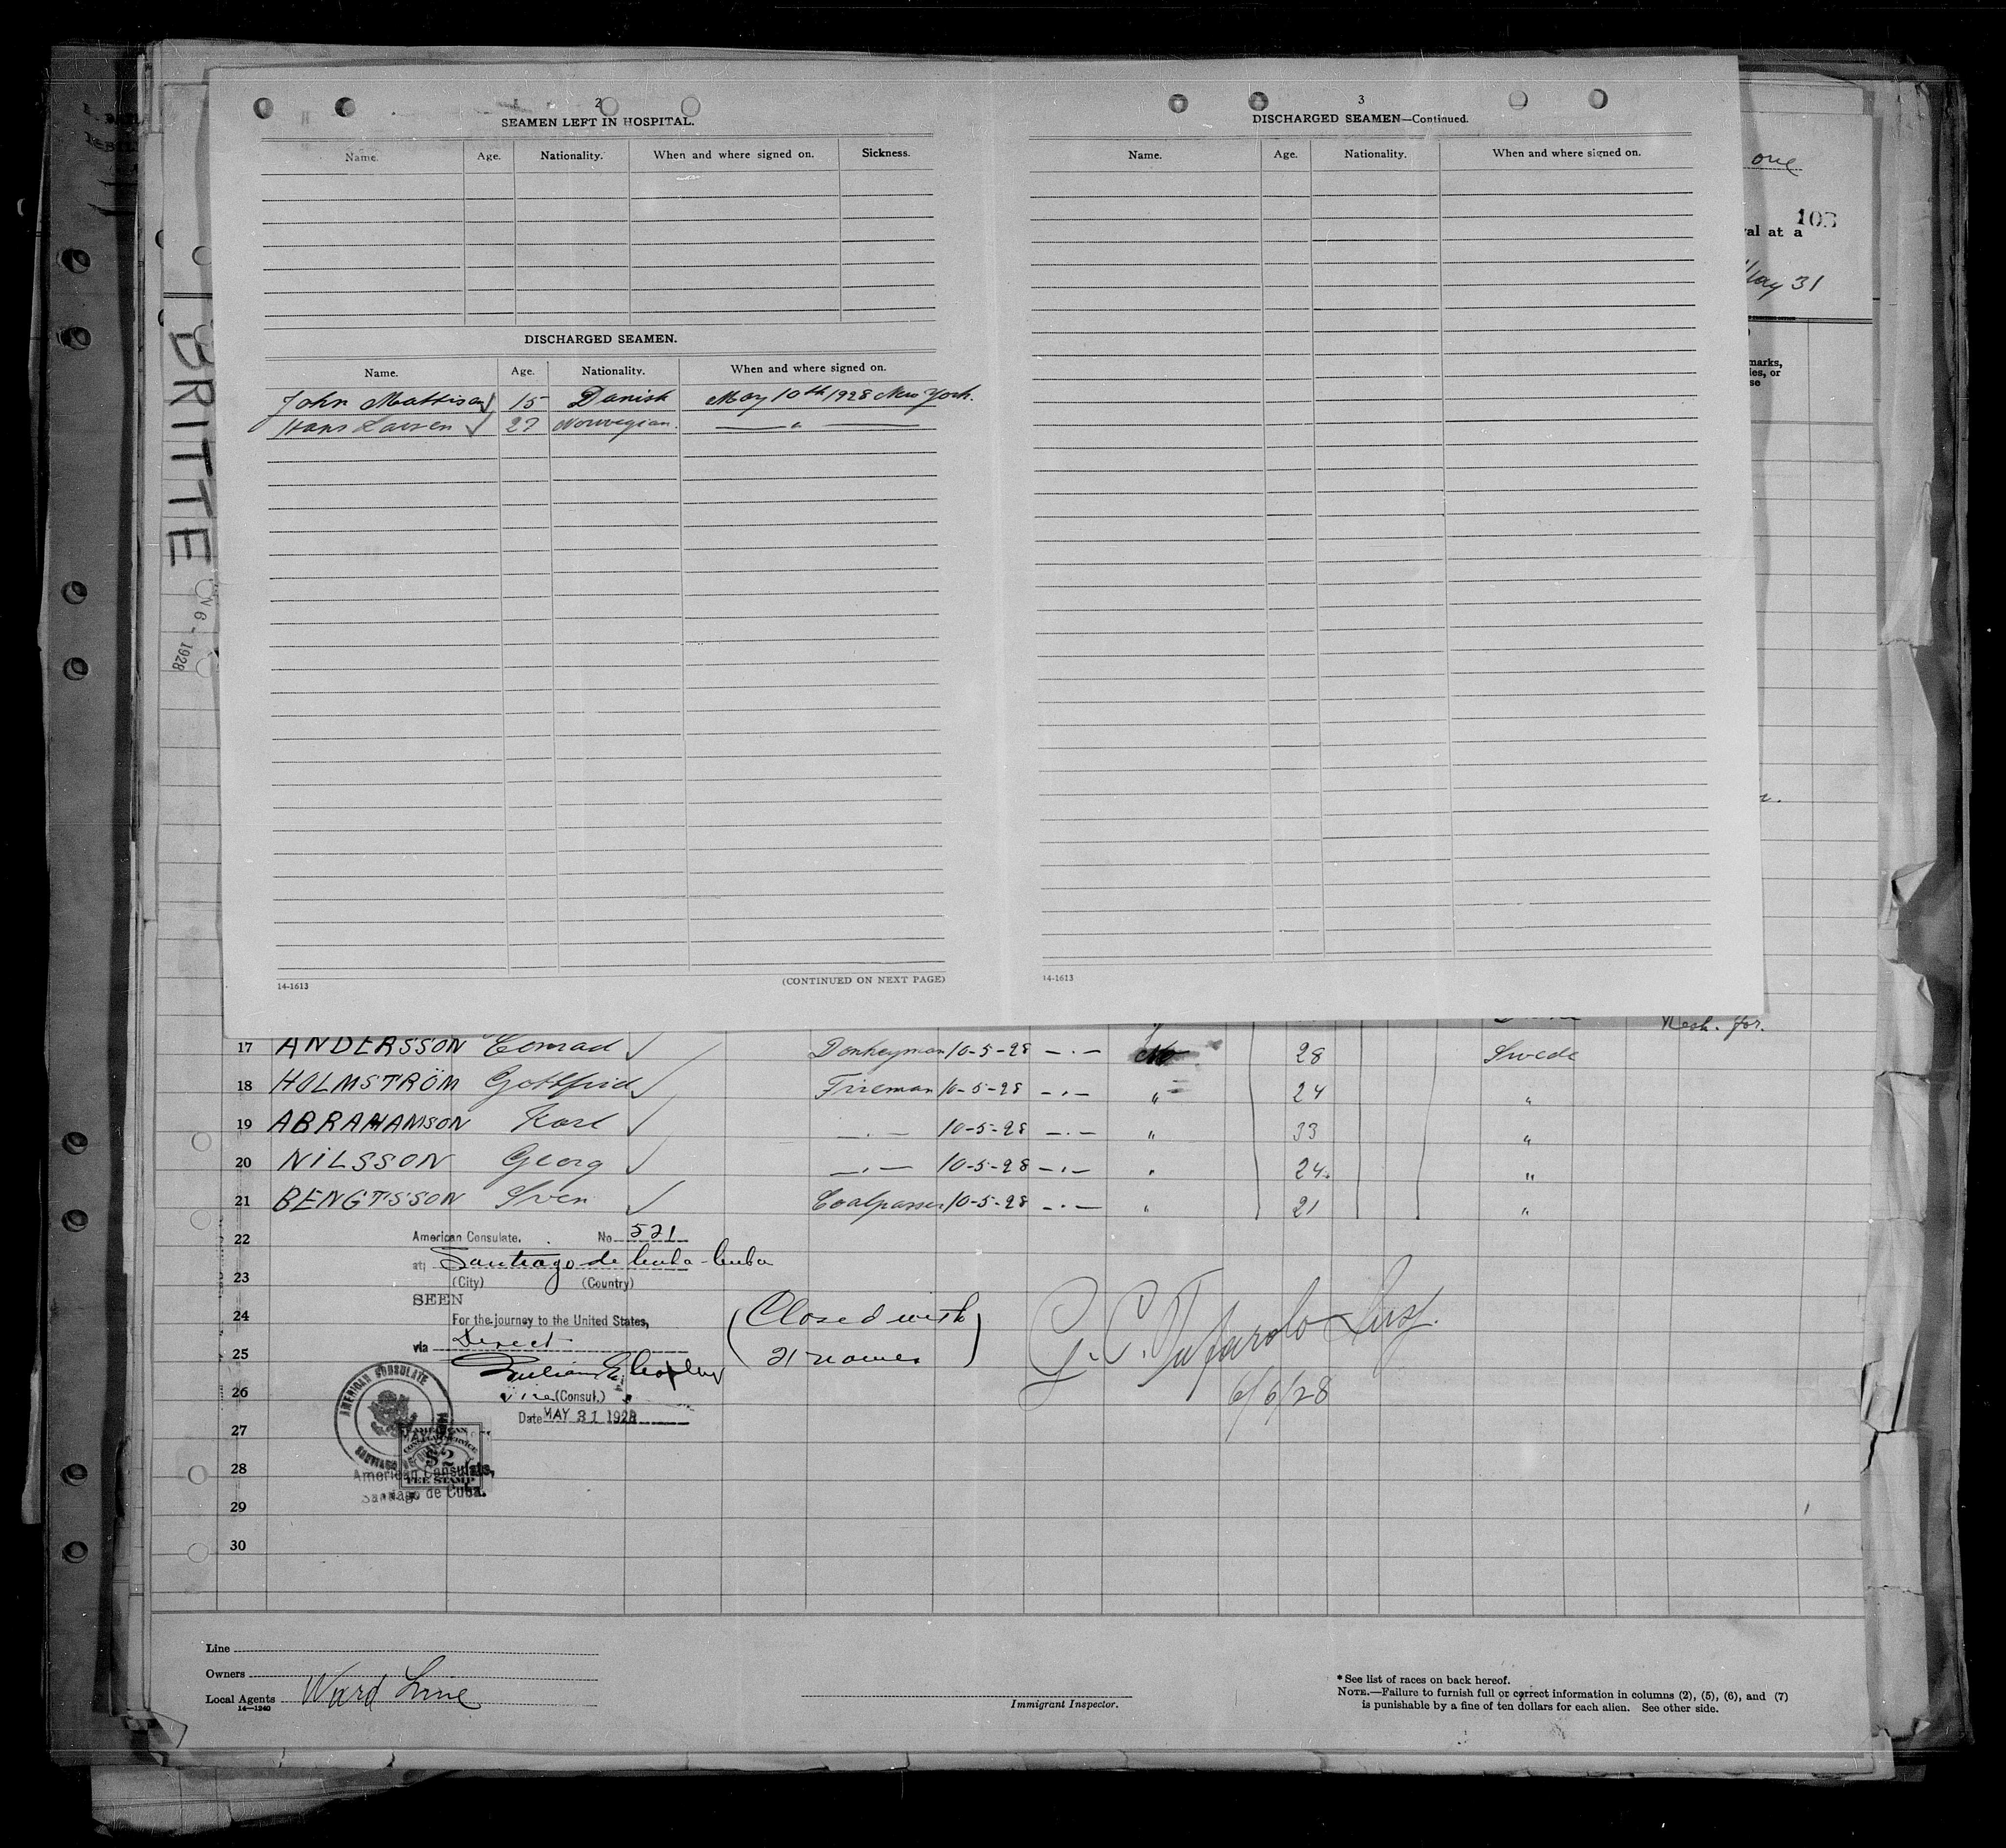 2
SEAMEN LEFT IN HOSPITAL.
Name. Age. Nationality. When and where signed on. Sickness.
DISCHARGED SEAMEN.
Name. Age. Nationality. When and where signed on.
John Mattison 15 Danish May 10th 1928 New York.
Hans Larsen 27 Norwegian. — " —
14-1613
(CONTINUED ON NEXT PAGE)
3
DISCHARGED SEAMEN—Continued.
Name. Age. Nationality. When and where signed on.
14-1613
one
103
val at a
May 31
marks,
les, or
se
BRITTE
N 6 - 1928
Nesh. for.
17 ANDERSSON Conrad Donkeyman 10-5-28 — . — No 28 Swede
18 HOLMSTRÖM Gottfrid Fireman 10-5-28 — . — " 24 "
19 ABRAHAMSON Karl — . — 10-5-28 — . — " 33 "
20 NILSSON Georg — . — 10-5-28 — . — " 24 "
21 BENGTSSON Sven Coalpasser 10-5-28 — . — " 21 "
22
American Consulate. No 521
at Santiago de Cuba - Cuba
23
(City) (Country)
SEEN
24
For the journey to the United States,
via Direct
25
(Closed with
21 names)
26
Vice (Consul.)
Date MAY 31 1928
6/6/28
AMERICAN CONSULATE
SANTIAGO DE CUBA
AMERICAN
CONSULAR SERVICE
$2
FEE STAMP
American Consulate,
Santiago de Cuba.
27
28
29
30
Line
Owners
Local Agents Ward Line
14—1240
Immigrant Inspector.
*See list of races on back hereof.
NOTE.—Failure to furnish full or correct information in columns (2), (5), (6), and (7)
is punishable by a fine of ten dollars for each alien. See other side.